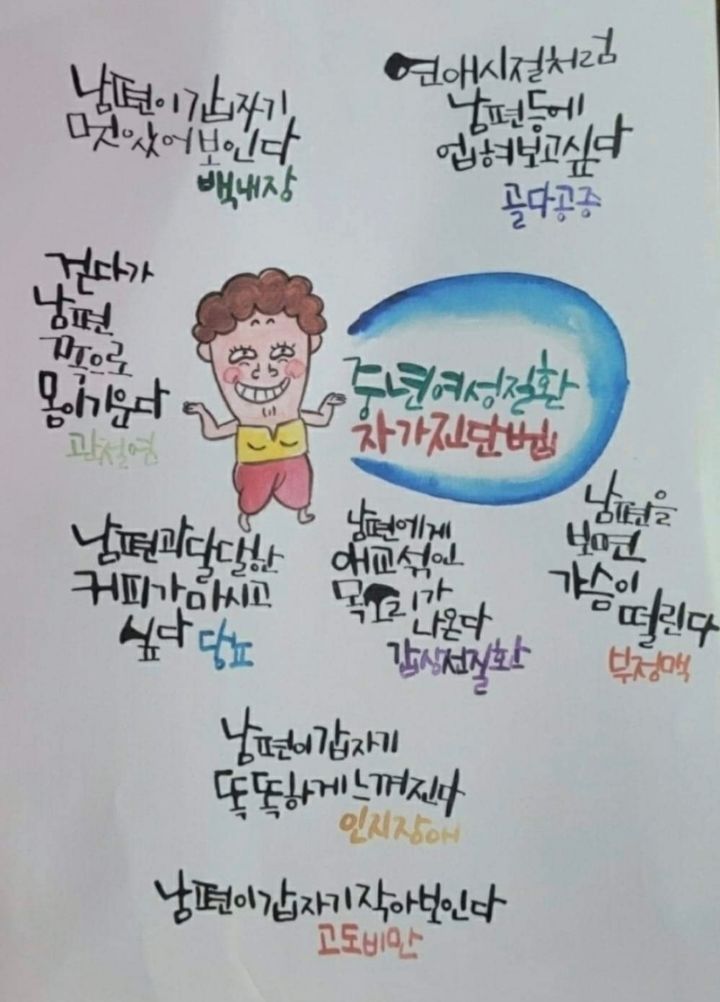 남편이 갑자기
멋있어 보인다
백내장
연애시절처럼
남편등에
업혀보고싶다
골다공증
걷다가
남편
쪽으로
몸이 기운다
관절염
중년여성질환
자가진단법
남편과 달달한
커피가 마시고
싶다 당뇨
남편에게
애교섞인
목소리가
나온다
갑상선질환
남편을
보면
가슴이
떨린다
부정맥
남편이 갑자기
똑똑하게 느껴진다
인지장애
남편이 갑자기 작아보인다
고도비만